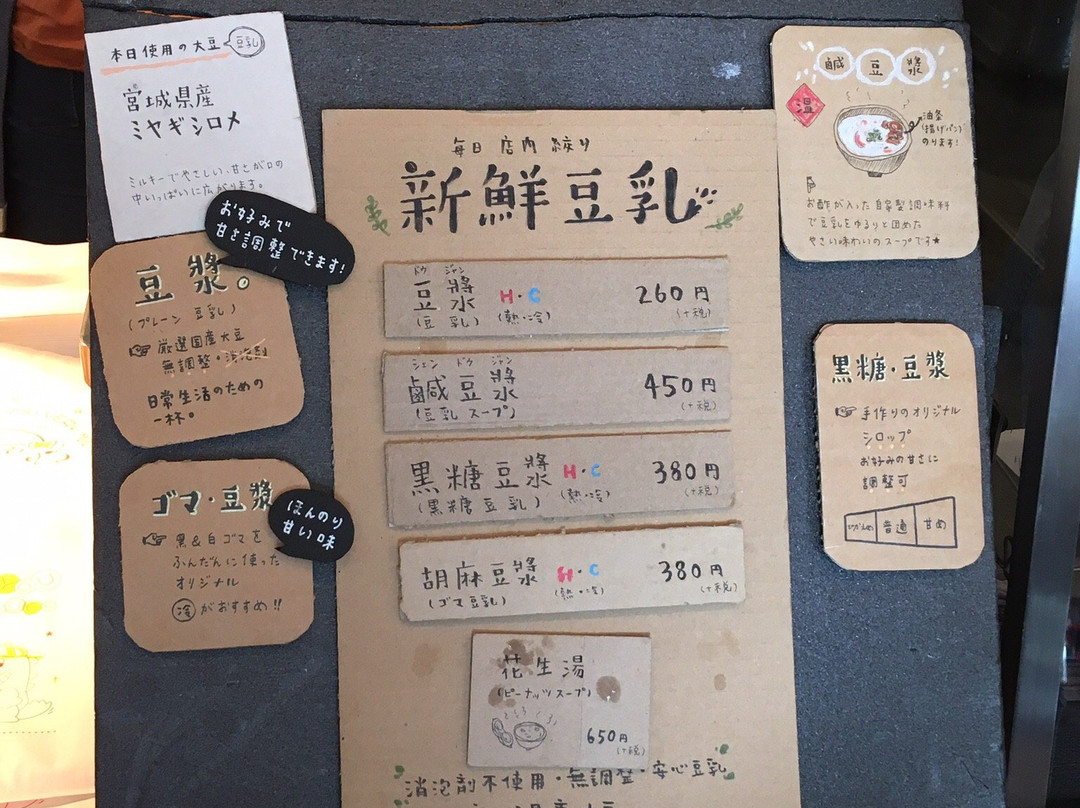 本日使用の大豆
豆乳
宮城県産
ミヤギシロメ
ミルキーでやさしい甘さが口の
中いっぱいに広がります。
お好みで
甘さ調整できます!
豆漿。
(プレーン豆乳)
厳選国産大豆
無調整・消泡剤
日常生活のための
一杯。
ゴマ・豆漿
ほんのり
甘い味
黒&白ゴマを
ふんだんに使った
オリジナル
冷がおすすめ!!
毎日店内絞り
新鮮豆乳
ドウ ジャン
豆漿 H・C 260円
(豆乳) (熱・冷) (+税)
シェン ドウ ジャン
鹹豆漿 450円
(豆乳スープ) (+税)
黒糖豆漿 H・C 380円
(黒糖豆乳) (熱・冷) (+税)
胡麻豆漿 H・C 380円
(ゴマ豆乳) (熱・冷) (+税)
花生湯
(ピーナッツスープ)
650円
(+税)
消泡剤不使用・無調整・安心豆乳
鹹豆漿
温
油条
(揚げパン)
のります!
お酢が入った自家製調味料
で豆乳をゆるりと固めた
やさい味わいのスープです★
黒糖・豆漿
手作りのオリジナル
シロップ
お好みの甘さに
調整可
ひかえめ 普通 甘め